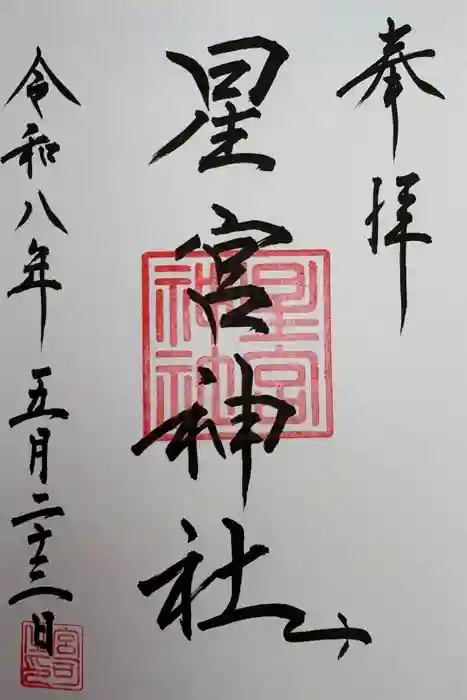 奉拝
星宮神社
星宮神社
令和八年五月二十三日